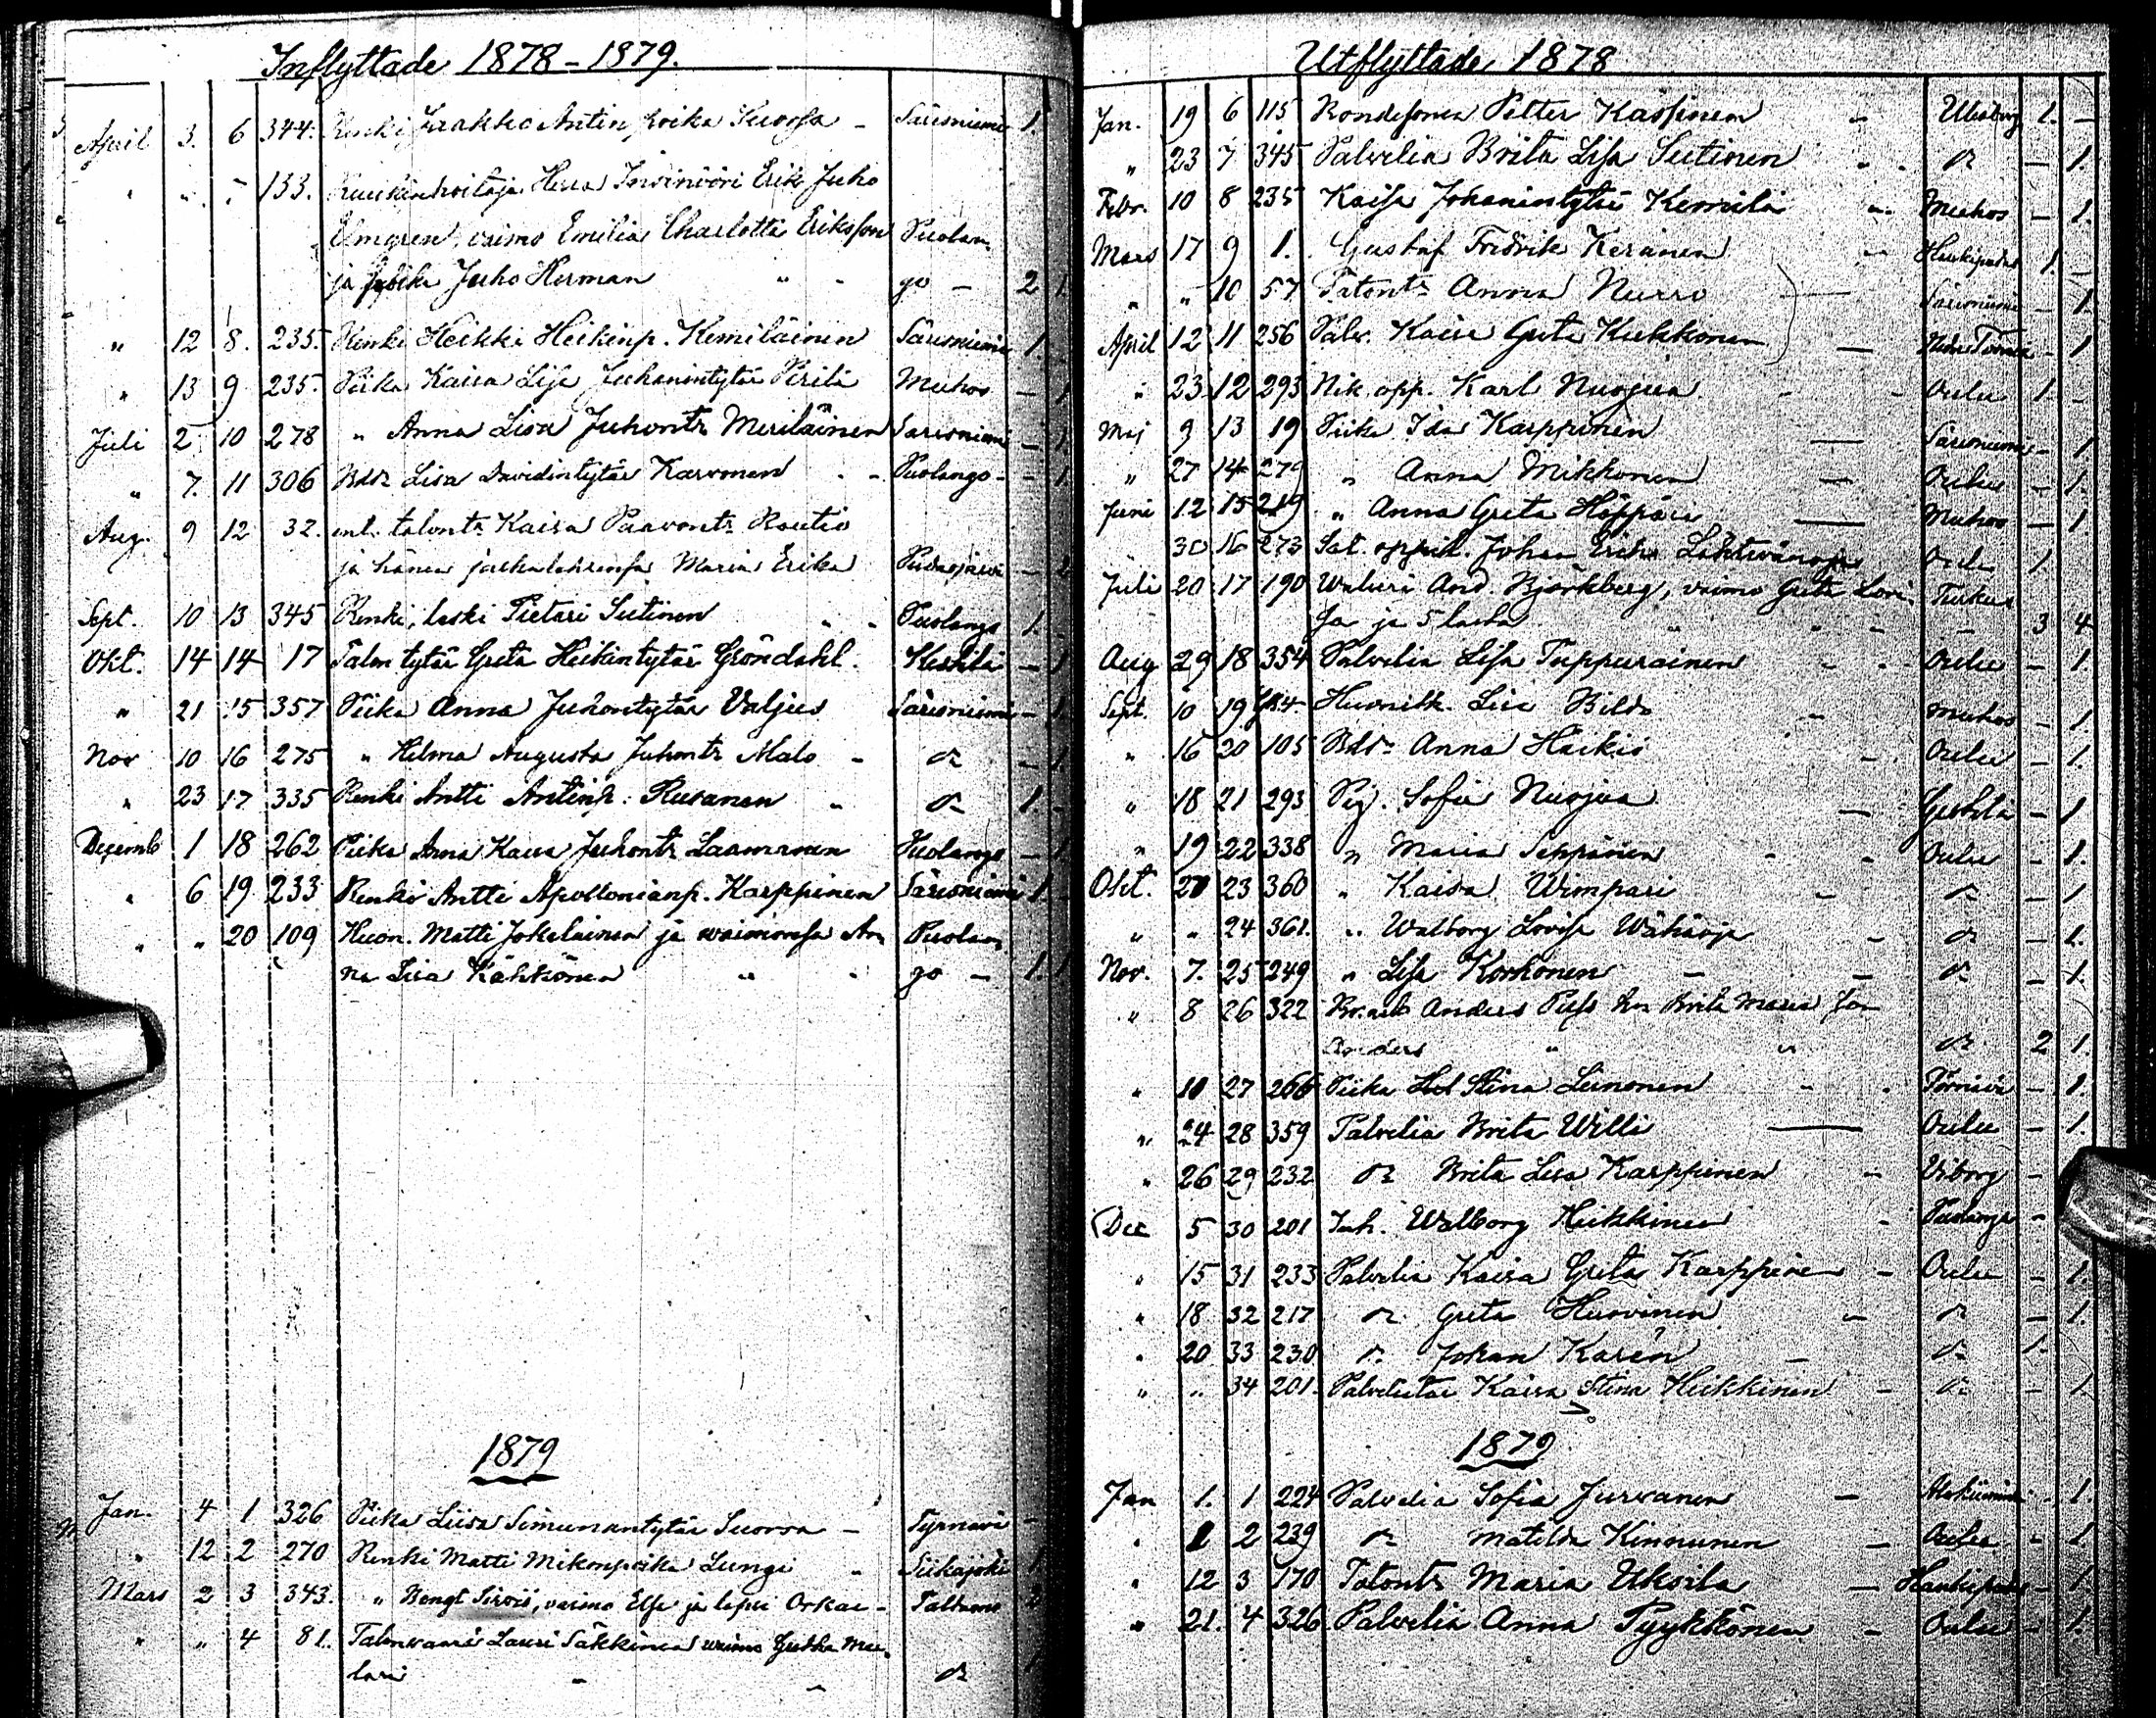 Inflyttade 1878-1879.
April 3. 6 344. Renki Jaakko Antin poika Suorsa - Säresniemi 1.
" " 7 133. Herra Insinööri Erik Juho
Elmgren, vaimo Emilia Charlotta Eriksson Puolan-
ja poika Juho Herman " " go - 2 1.
" 12 8. 235. Renki Heikki Heikinp. Kemiläinen Säresniemi 1.
" 13 9 235. Piika Kaisa Lisa Juhanintytär Perilä Muhos - 1
Juli 2 10 278 " Anna Lisa Juhontr Meriläinen Säresniemi - 1
" 7. 11 306 Lisa Davidintytär Karvonen - - Puolango - - 1.
Aug. 9 12 32. talontr Kaisa Paavontr Rautio
ja hänen Maria Erika Pudasjärvi - 2
Sept. 10 13 345 Renki, leski Pietari Sutinen " - Puolango 1. -
Okt. 14 14 17 Talon tytär Greta Heikintytär Gröndahl. Kestilä - 1
" 21 15 357 Piika Anna Juhontytär Valjus Säresniemi - 1.
Nov 10 16 275 " Helma Augusta Juhontr Malo - dr - 1
" 23 17 335 Renki Antti Antinp. Rusanen " dr 1 -
Decemb 1 18 262 Piika Anna Kaisa Juhontr Laamanen Puolango - 1
" 6 19 233 Renki Antti Apollonianp. Karppinen Säresniemi 1. -
" " 20 109 Huon. Matti Jokelainen ja waimonsa An- Puolan-
na Lisa Kähkönen " " go - 1. 1
1879
Jan. 4 1 326 Piika Liisa Simunantytär Suorsa - Tyrnävä -
" 12 2 270 Renki Matti Mikonpoika Lungi " Siikajoki 1
Mars 2 3 343. " Bengt Sirviö, vaimo Elsa ja lapsi Oskar - Paltamo 2
" " 4 81. Talonvaari Lauri Säkkinen waimo Mu-
lari " " dr 1
Utflyttade 1878
Jan. 19 6 115 Bondesonen Petter Karppinen - Uleåborg 1. -
" 23 7 345 Palvelia Brita Lisa Sutinen " dr - 1.
Febr. 10 8 235 Kaisa Johanintytär Kemilä " Muhos - 1.
Mars 17 9 1. Gustaf Fredrik Keränen " Haukipudas 1. -
" " 10 57 Talontr Anna Nurro - Säresniemi - 1.
April 12 11 256 Palv. Kaisa Greta Kukkonen - Neder Torneå - 1
" 23 12 293 Nik. opp. Karl Nuojua - - Oulu 1. -
Maj 9 13 19 Piika Ida Karppinen - Säresniemi - 1
" 27 14 279 " Anna Mikkonen - Oulu - 1.
Juni 12 15 219 " Anna Greta Höppä - Muhos - 1
" 30 16 273 Sat. oppil. Johan Erik Oulu 1
Juli 20 17 190 Waluri And. Björkberg, vaimo Greta Lovi- Turku
sa ja 5 lasta " " - 3 4
Aug 29 18 354 Palvelia Lisa Tuppurainen - - Oulu - 1.
Sept. 10 19 Lisa Muhos - 1.
" 16 20 105 Anna Häikiö - Oulu - 1
" 18 21 293 Pig. Sofia Nuojua - Kestilä - 1
" 19 22 338 " Maria Seppänen - - Oulu - 1.
Okt. 20 23 360 " Kaisa Wimpari - dr - 1
" " 24 361. " Walborg Lovisa Wähäoja - dr - 1.
Nov. 7. 25 249 " Lisa Korhonen - - dr - 1.
" 8 26 322 Anders hu Brita Maria son
Anders " " dr 2 1.
" 10 27 266 Piika Stina Leinonen " - Törnävä - 1.
" 24 28 359 Palvelia Brita Willi - Oulu - 1.
" 26 29 232 dr Brita Lisa Karppinen - Viborg -
Dec 5 30 201 Inh. Walborg Heikkinen - Puolango -
" 15 31 233 Palvelia Kaisa Greta Karppinen - Oulu - 1.
" 18 32 217 dr Greta Huovinen - dr - 1.
" 20 33 230 dr Johan Karén - dr 1.
" " 34 201. Kaisa Stina Heikkinen - dr - 1.
1879
Jan 1. 1 224 Palvelia Sofia Jurvanen - 1.
" 1 2 239 dr Matilda Kinnunen - Oulu - 1
" 12 3 170 Talontr Maria Uksila - Haukipudas - 1.
" 21. 4 326 Palvelia Anna Pyykkönen - Oulu - 1.